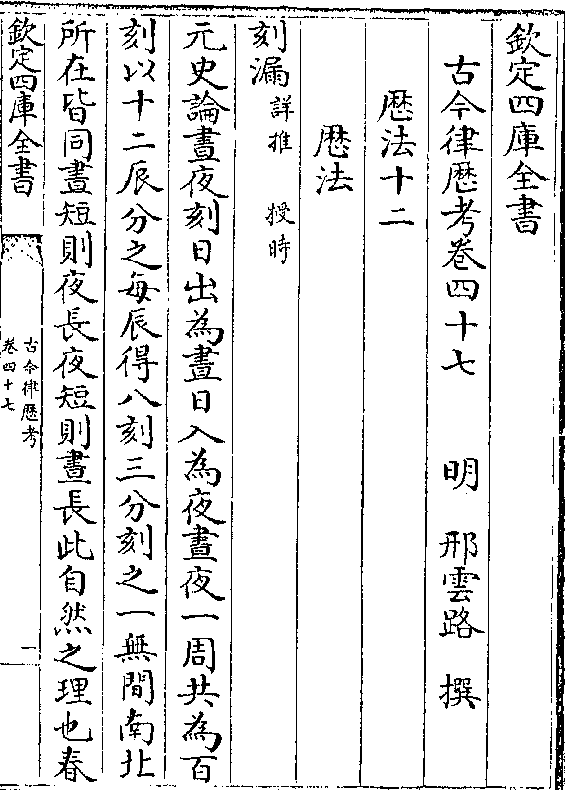 欽定四庫全書
古今律厯考卷四十七　明　邢雲路　撰
厯法十二
厯法
刻漏詳推　授時
元史論晝夜刻日出為晝日入為夜晝夜一周共為百
刻以十二辰分之每辰得八刻三分刻之一無間南北
所在皆同晝短則夜長夜短則晝長此自然之理也春
欽定四庫全書
古今律厯考
卷四十七
一